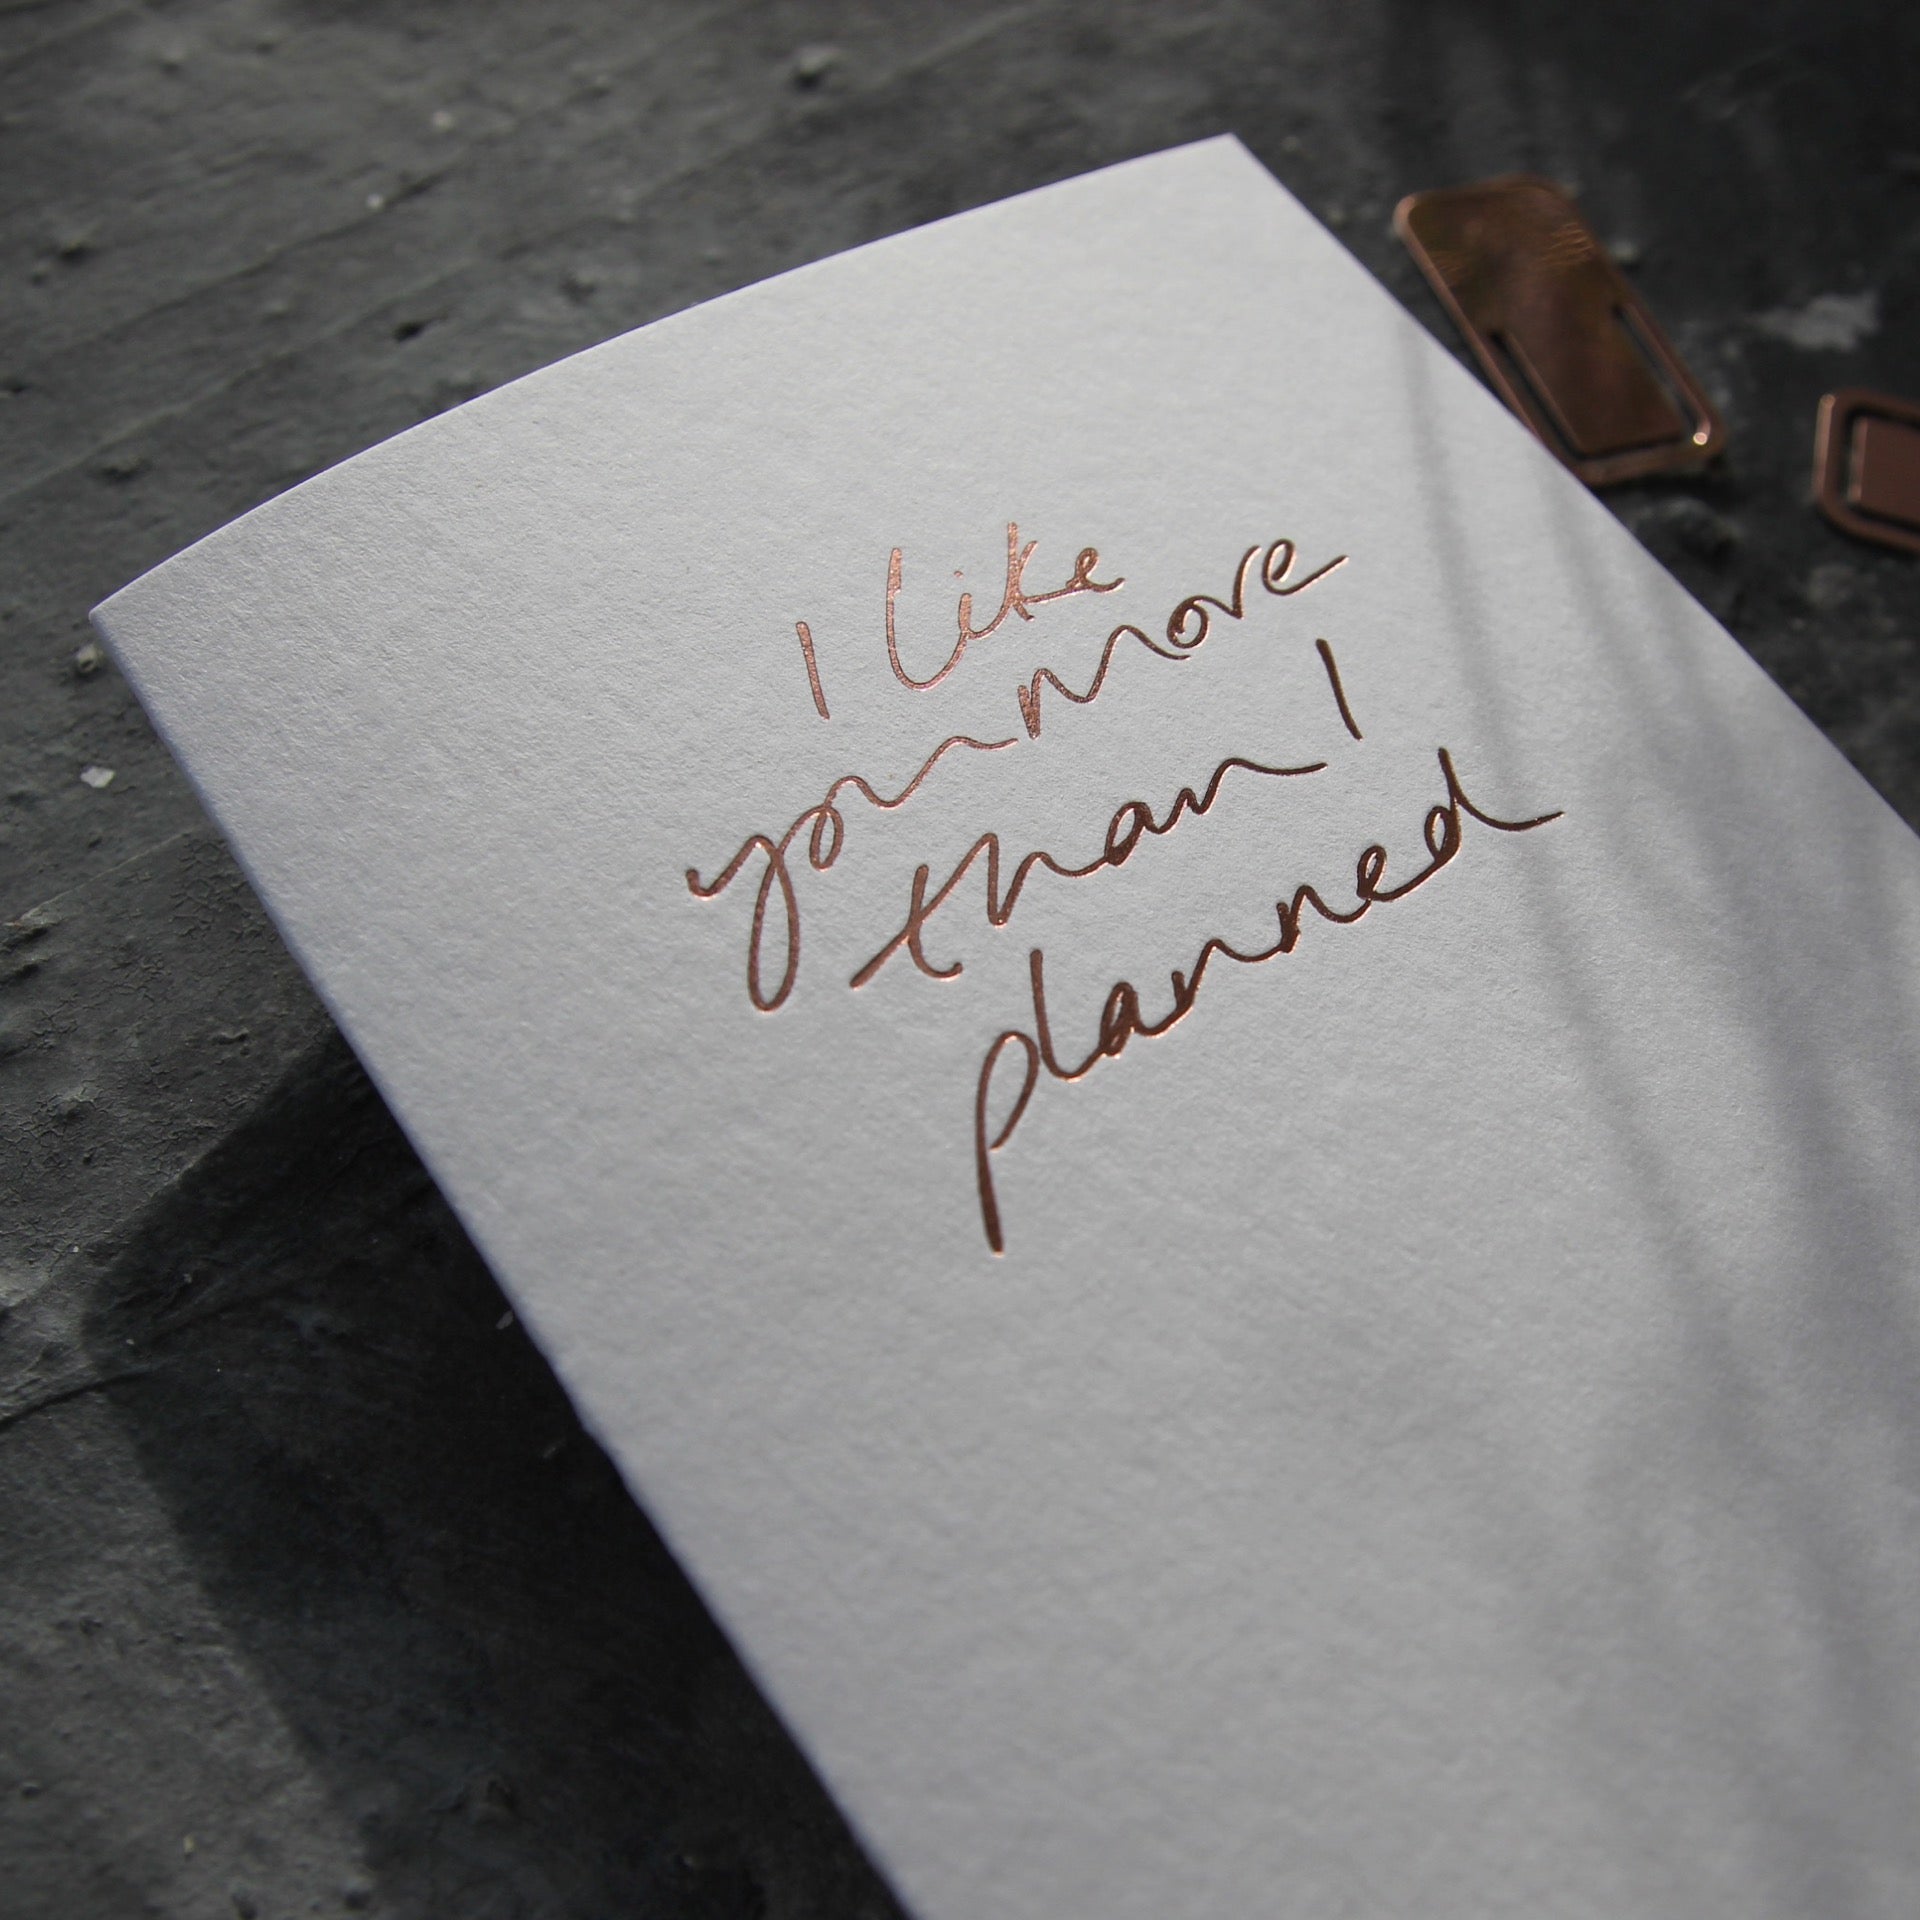 I like
you more
than I
planned